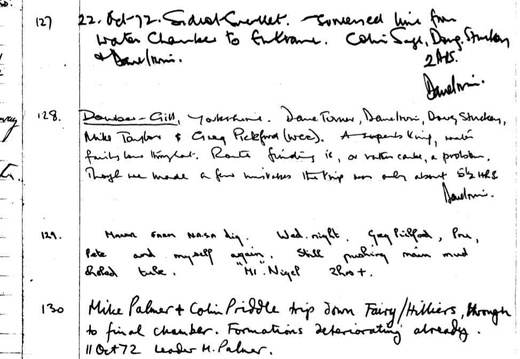 127 22. Oct-72. Sidcot Swallet. - Surveyed line from
Water Chamber to Entrance. Colin Sage, Doug. Stuckey
& Dave Irwin. 2 HRS.
Dave Irwin.
128. Dowber-Gill, Yorkshire. Dave Turner, Dave Irwin, Doug Stuckey,
Mike Taylor & Greg Pickford (WCC). A superb thing, water
fairly low throughout. Route finding is, or rather can be, a problem.
Though we made a few mistakes the trip was only about 5½ HRS
Dave Irwin.
129. from NASA dig. Wed. night. Greg Pickford, Pru,
Pete and myself again. Still pushing main mud
choked tube. "Mr. Nigel 2hrs +.
130 Mike Palmer + Colin Priddle trip down Fairy/Hilliers, through
to final chamber. Formations deteriorating already.
11 Oct 72 Leader M. Palmer.